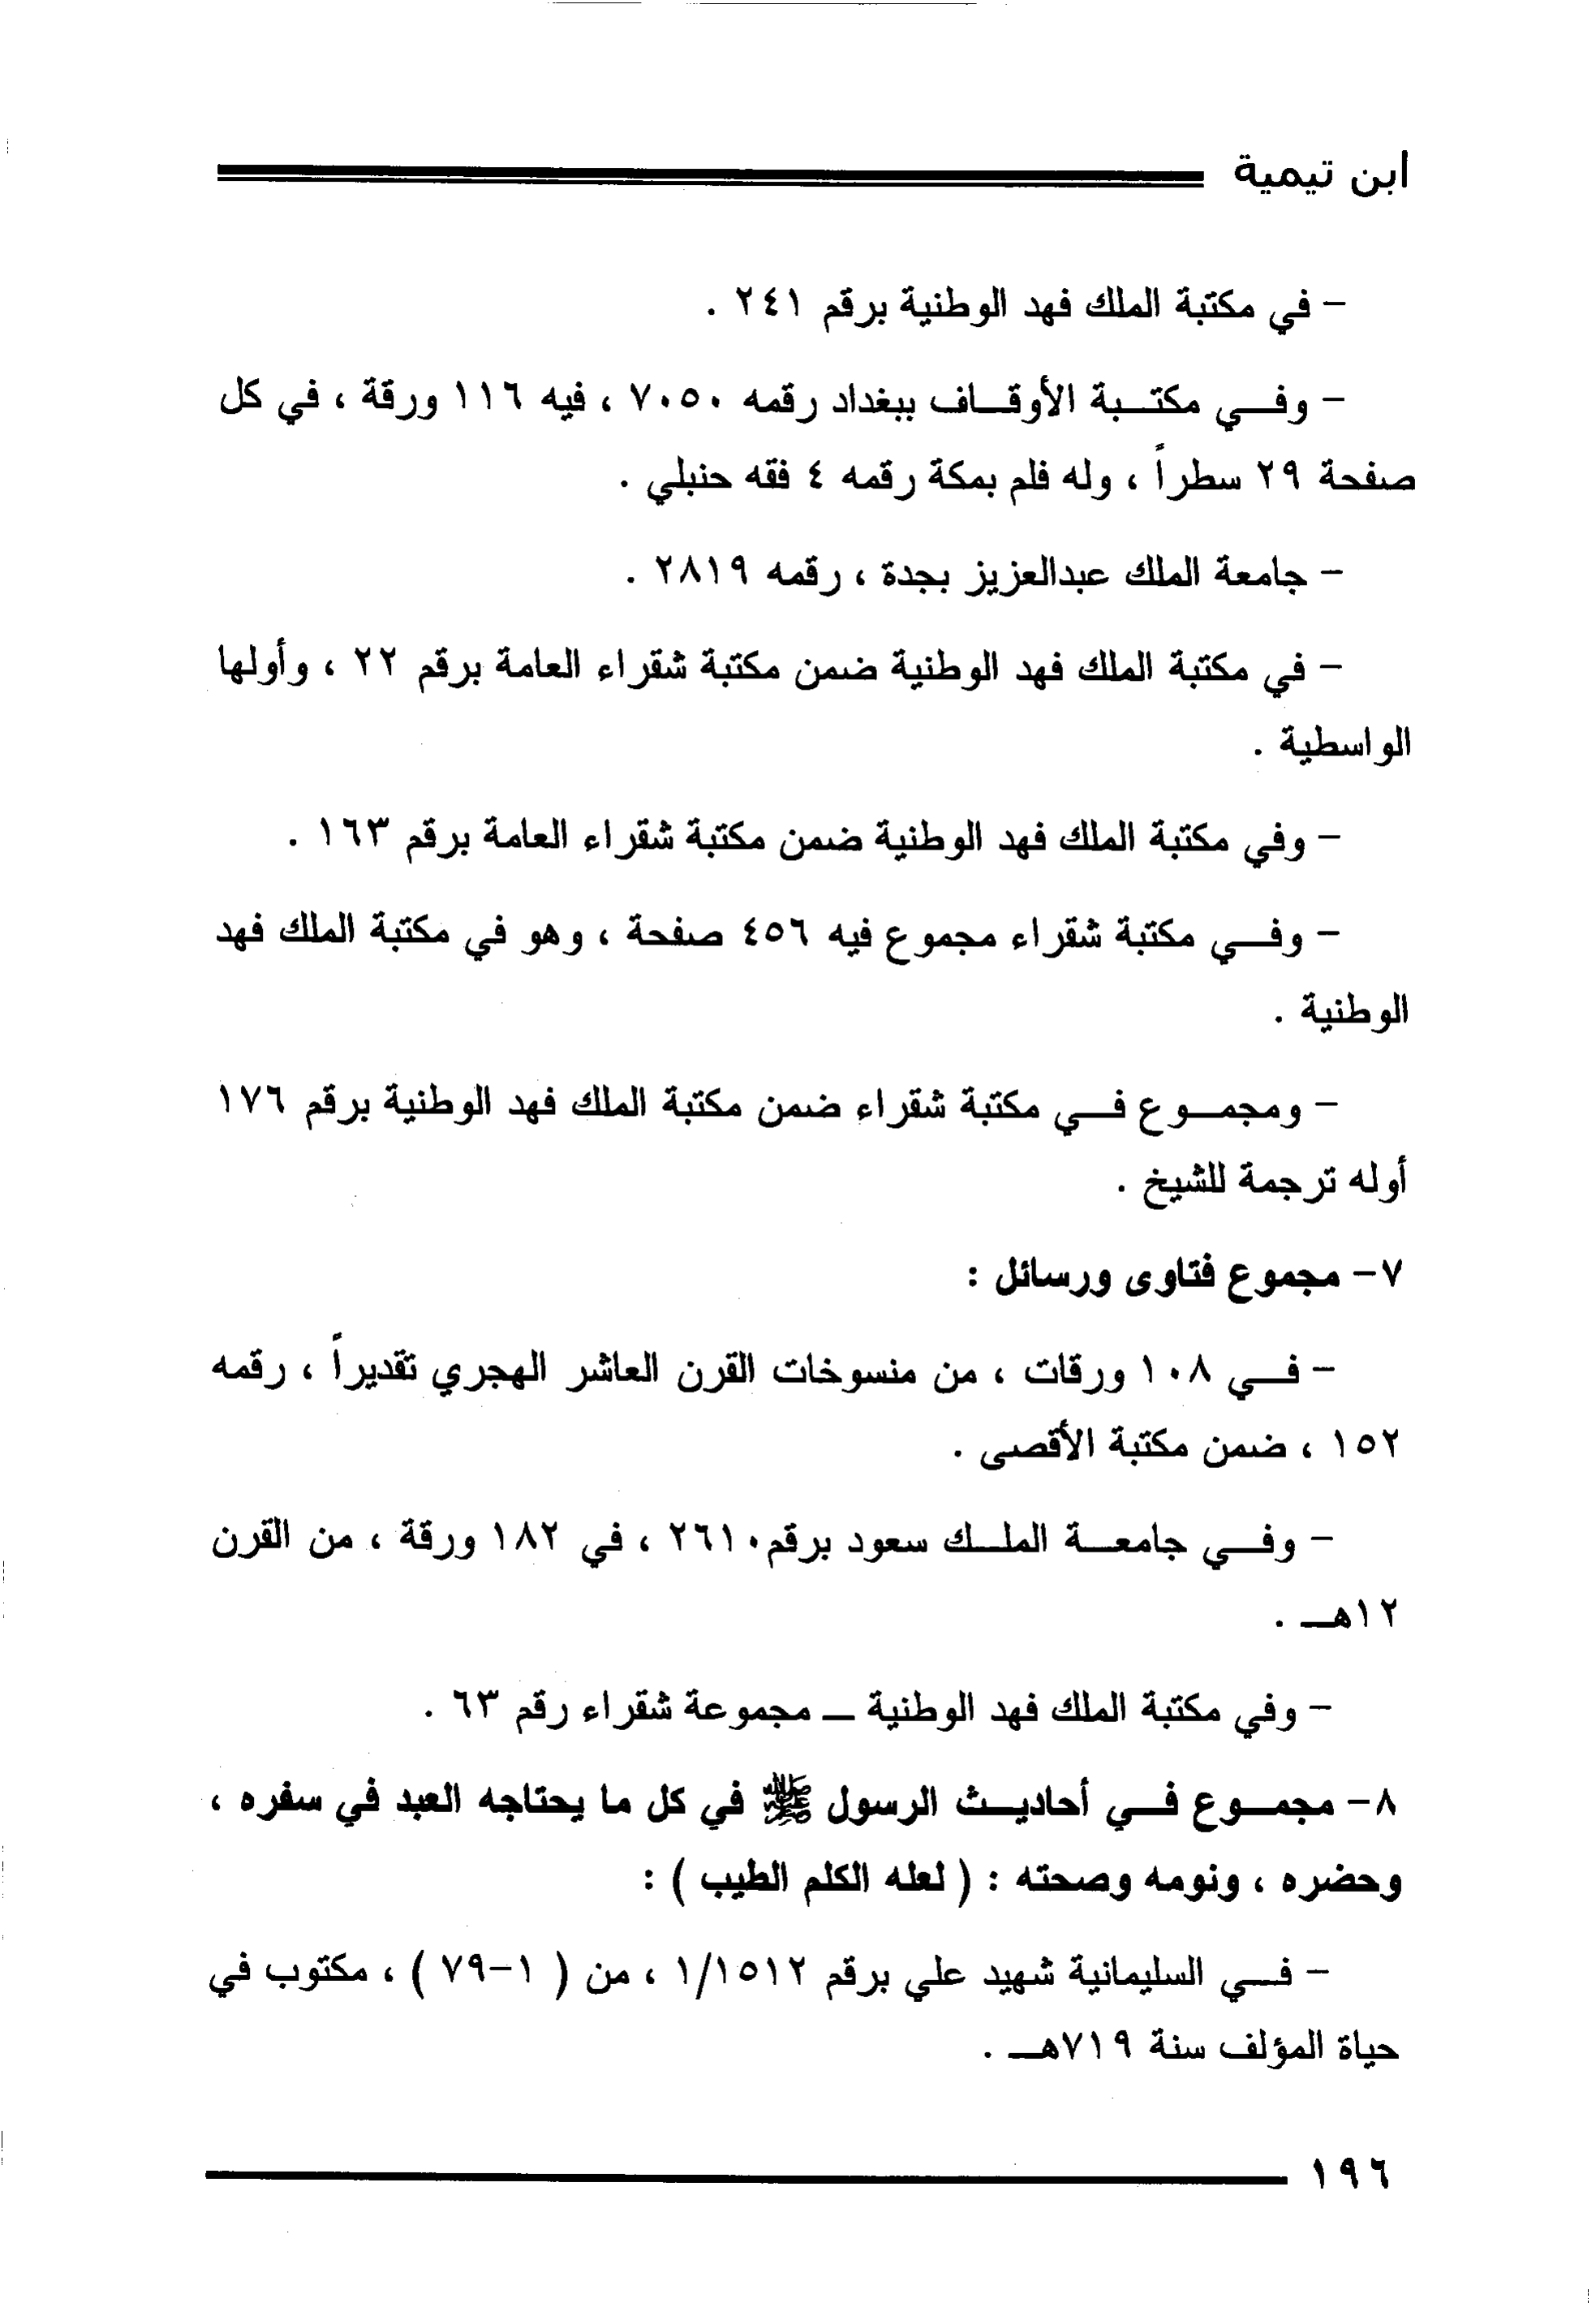 ابن تيمية
– في مكتبة الملك فهد الوطنية برقم ٢٤١ .
– وفي مكتبة الأوقاف ببغداد رقمه ٧٠٥٠ ، فيه ١١٦ ورقة ، في كل
صفحة ٢٩ سطراً ، وله فلم بمكة رقمه ٤ فقه حنبلي .
– جامعة الملك عبدالعزيز بجدة ، رقمه ٢٨١٩ .
– في مكتبة الملك فهد الوطنية ضمن مكتبة شقراء العامة برقم ٢٢ ، وأولها
الواسطية .
– وفي مكتبة الملك فهد الوطنية ضمن مكتبة شقراء العامة برقم ١٦٣ .
– وفي مكتبة شقراء مجموع فيه ٤٥٦ صفحة ، وهو في مكتبة الملك فهد
الوطنية .
– ومجموع في مكتبة شقراء ضمن مكتبة الملك فهد الوطنية برقم ١٧٦
أوله ترجمة للشيخ .
٧– مجموع فتاوى ورسائل :
– في ١٠٨ ورقات ، من منسوخات القرن العاشر الهجري تقديراً ، رقمه
١٥٢ ، ضمن مكتبة الأقصى .
– وفي جامعة الملك سعود برقم ٢٦١٠ ، في ١٨٢ ورقة ، من القرن
١٢هـ .
– وفي مكتبة الملك فهد الوطنية – مجموعة شقراء رقم ٦٣ .
٨– مجموع في أحاديث الرسول ﷺ في كل ما يحتاجه العبد في سفره ،
وحضره ، ونومه وصحته : ( لعله الكلم الطيب ) :
– في السليمانية شهيد علي برقم ١/١٥١٢ ، من ( ١–٧٩ ) ، مكتوب في
حياة المؤلف سنة ٧١٩هـ .
١٩٦